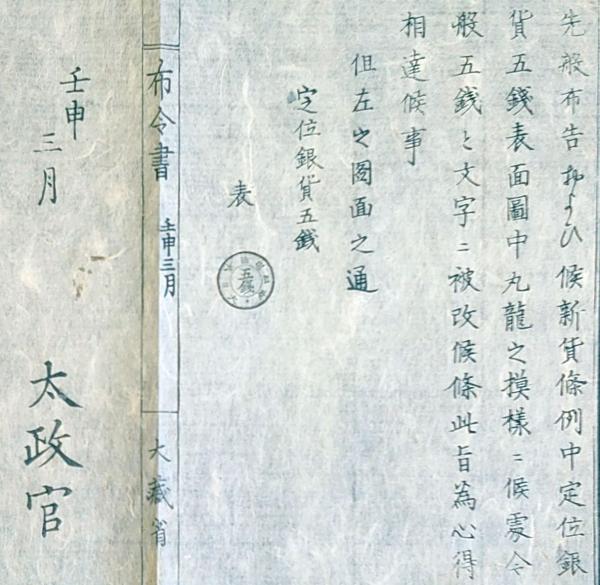 先般布告および候新貨條例中定位銀
貨五錢表面圖中丸龍之摸樣ニ候處今
般五錢と文字ニ被改候條此旨為心得
相達候事
但左之圖面之通
定位銀貨五錢
表
五錢
布令書 壬申三月 大藏省
壬申
三月
太政官